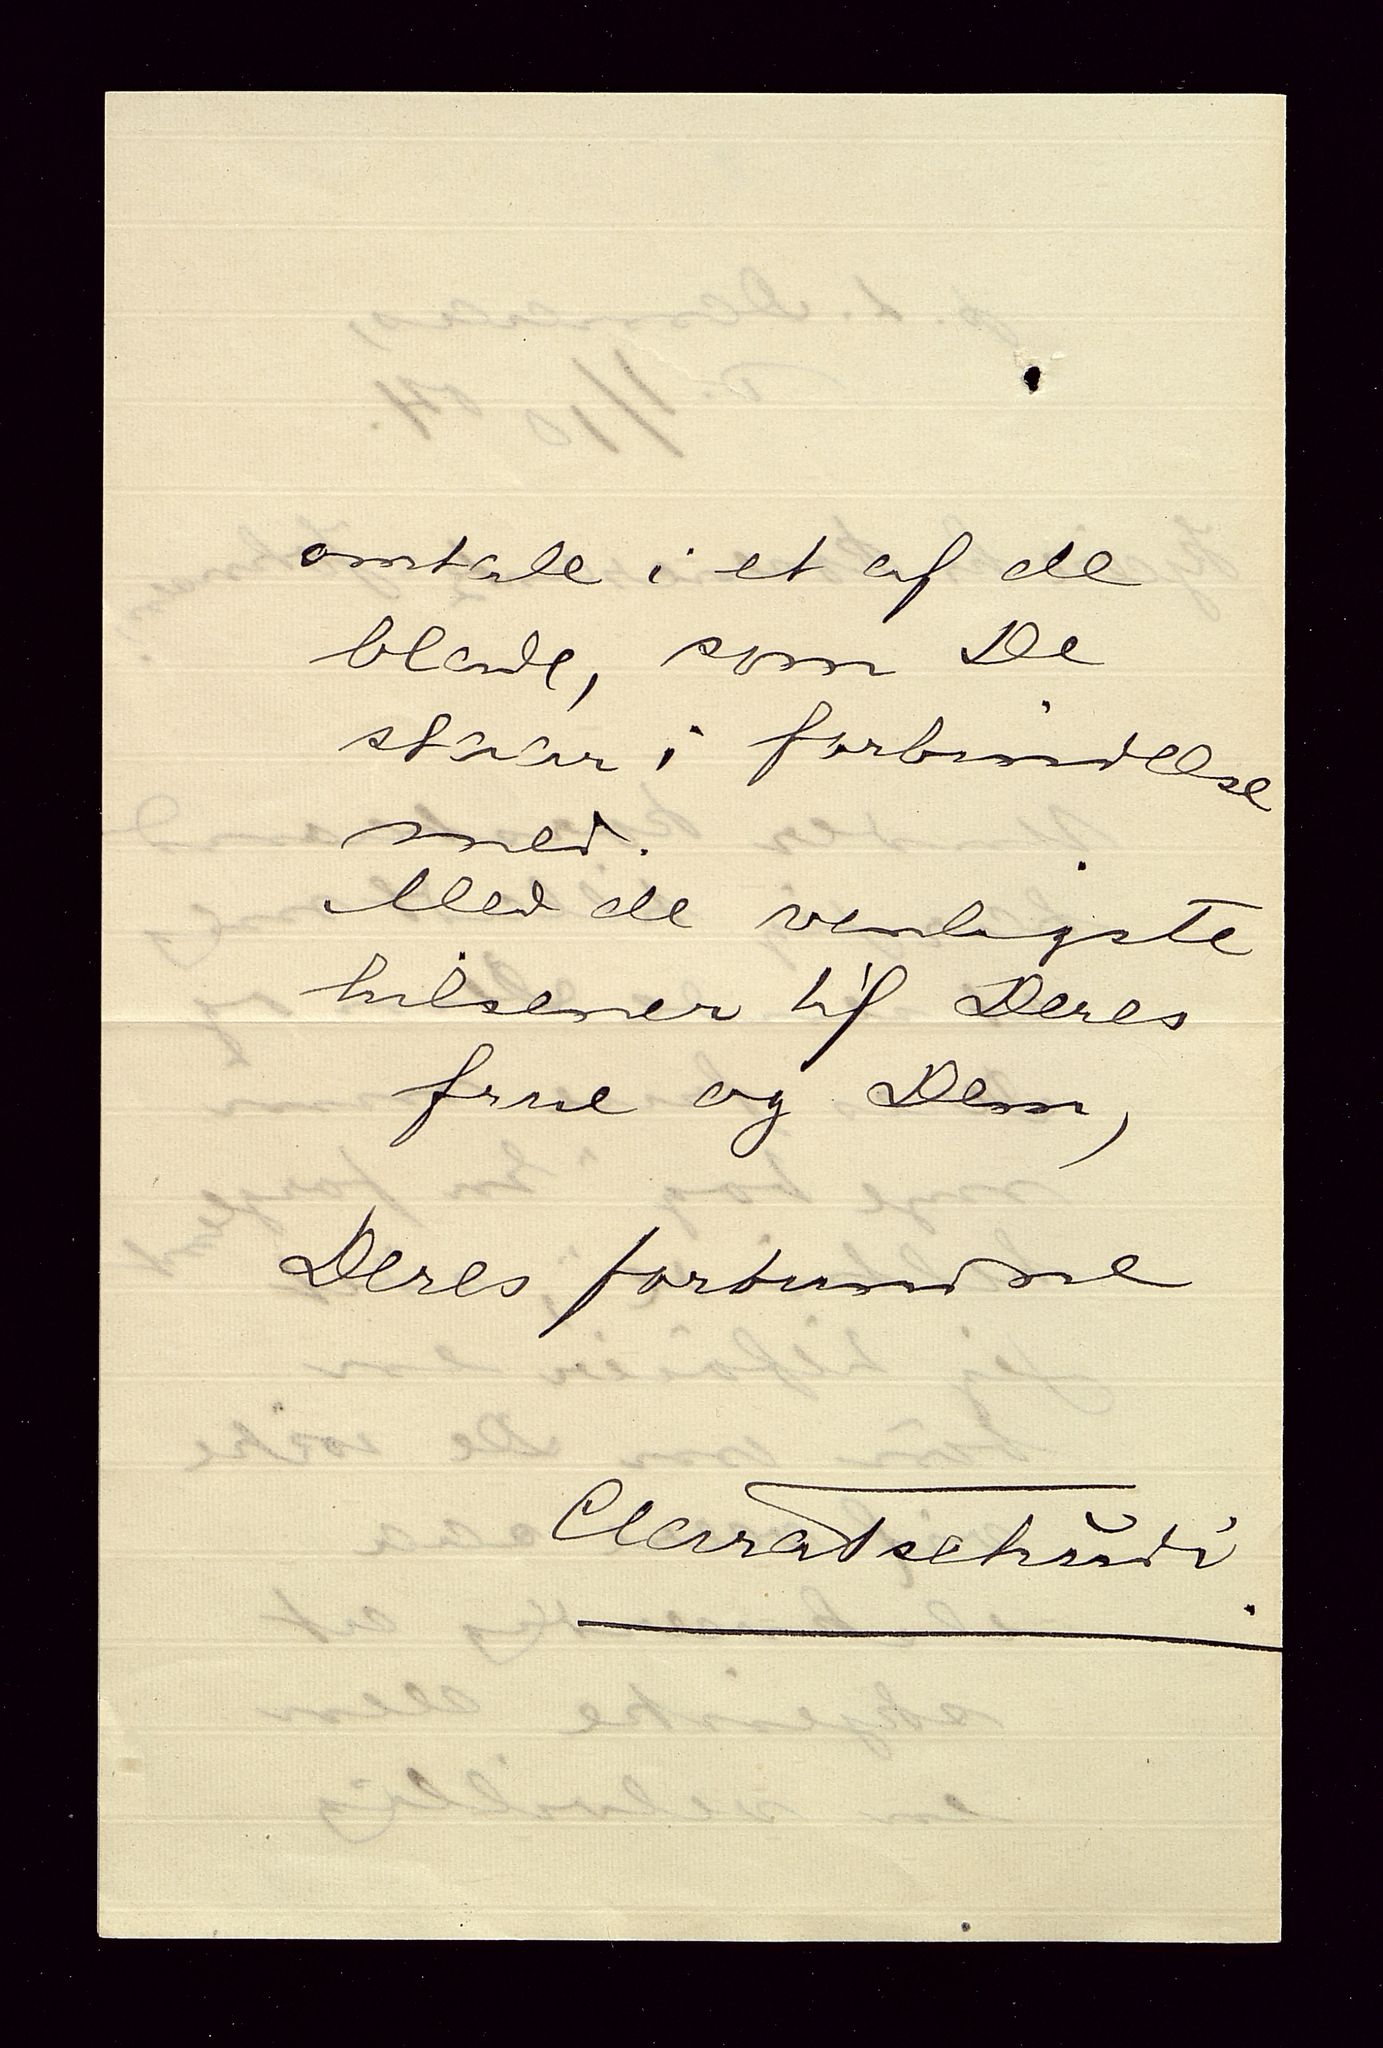 omtale i et af de
blade, som De
staar i forbindelse
med.
Med de venligste
hilsener til Deres
frue og Dem,
Deres forbundne
Clara Tschudi.